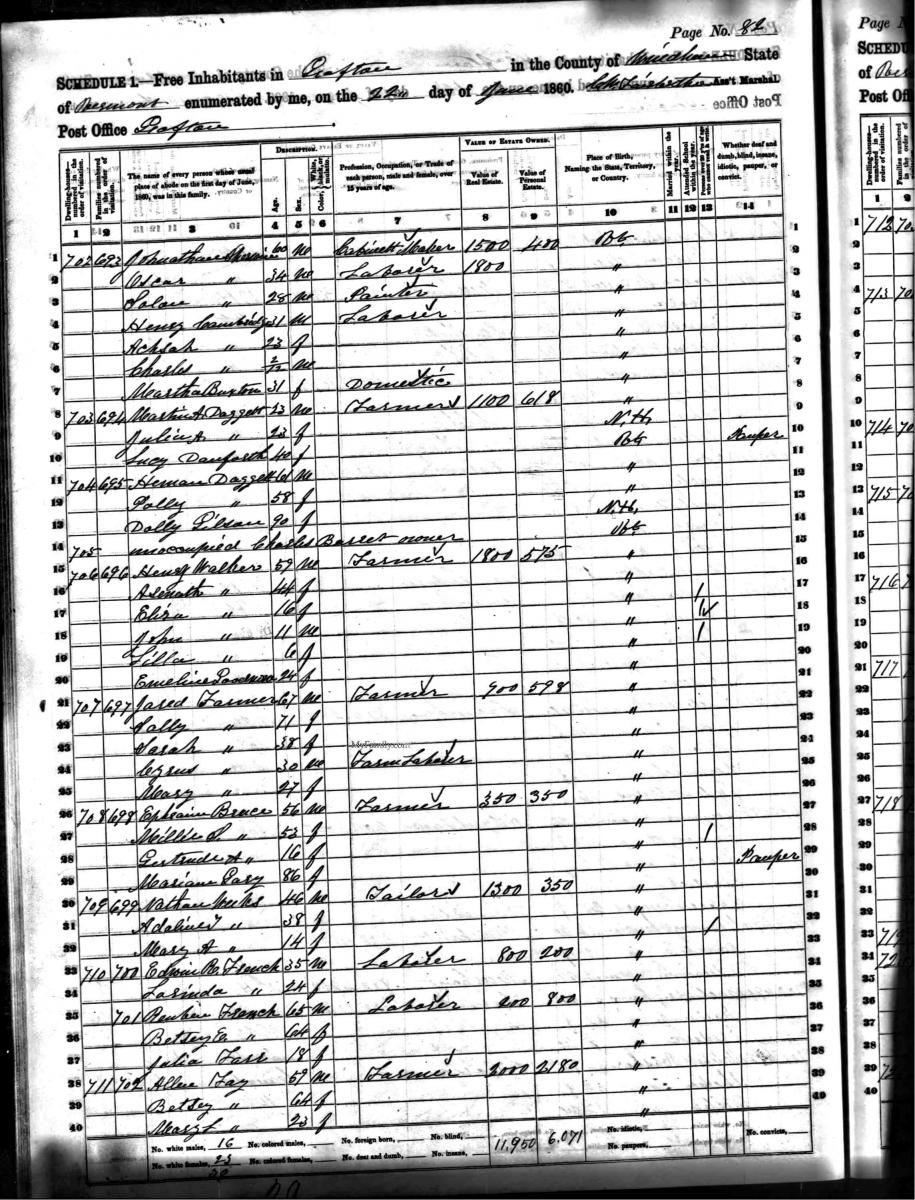 Page No. 82
SCHEDULE 1.—Free Inhabitants in Grafton in the County of Windham State
of Vermont enumerated by me, on the 22" day of June 1860. Ass't Marshal
Post Office Grafton
Dwelling-houses—numbered in the order of visitation.
Families numbered in the order of visitation.
The name of every person whose usual place of abode on the first day of June, 1860, was in this family.
DESCRIPTION.
Age.
Sex.
Color, White, black, or mulatto.
Profession, Occupation, or Trade of each person, male and female, over 15 years of age.
VALUE OF ESTATE OWNED.
Value of Real Estate.
Value of Personal Estate.
Place of Birth, Naming the State, Territory, or Country.
Married within the year.
Attended School within the year.
Persons over 20 y'rs of age who cannot read & write.
Whether deaf and dumb, blind, insane, idiotic, pauper, or convict.
1 2 3 4 5 6 7 8 9 10 11 12 13 14
1 702 693 Johnathan 60 m Cabinett Maker 1500 400
2 Oscar " 34 m Laborer 1800 "
3 Solon " 28 m Painter "
4 Henry Cambridge 31 m Laborer "
5 Achsah " 23 f "
6 Charles " 2/12 m "
7 Martha Buxton 31 f Domestic "
8 703 694 Martin A. Daggett 23 m Farmer 1100 618 "
9 Julia A. " 23 f N.H.
10 Lucy Danforth 40 f Pauper
11 704 695 Heman Daggett 61 m "
12 Polly " 58 f "
13 Dolly Gilson 90 f N.H.
14 705 unoccupied Charles Barret owner
15 706 696 Henry Walker 59 m Farmer 1800 575 "
16 Asenath " 44 f "
17 Eliza " 16 f " 1
18 John " 11 m " 1
19 Lilla " 6 f " 1
20 Emeline 24 f "
21 707 697 Jared Farmer 67 m Farmer 900 598 "
22 Sally " 71 f "
23 Sarah " 38 f "
MyFamily.com
24 Cyrus " 30 m Farm Laborer "
25 Mary " 27 f "
26 708 698 Ephraim Bruce 56 m Farmer 350 350 "
27 Millie S. " 52 f "
28 Gertrude A " 16 f " 1
29 Mariam 86 f " Pauper
30 709 699 Nathan Weeks 46 m Tailor 1300 350 "
31 Adaline " 38 f "
32 Mary A " 14 f " 1
33 710 700 Edwin R. French 35 m Laborer 800 200 "
34 Lorinda " 24 f "
35 701 Reuben French 65 m Laborer 200 800 "
36 Betsey E. " 64 f "
37 Julia 18 f "
38 711 702 Allen Fay 59 m Farmer 2000 2180 "
39 Betsey " 64 f "
40 Mary L " 23 f "
No. white males, 16 No. colored males, No. foreign born, No. blind, 11,950 6.071 No. idiotic, No. convicts,
No. white females, 23 No. colored females, No. deaf and dumb, No. insane, No. paupers,